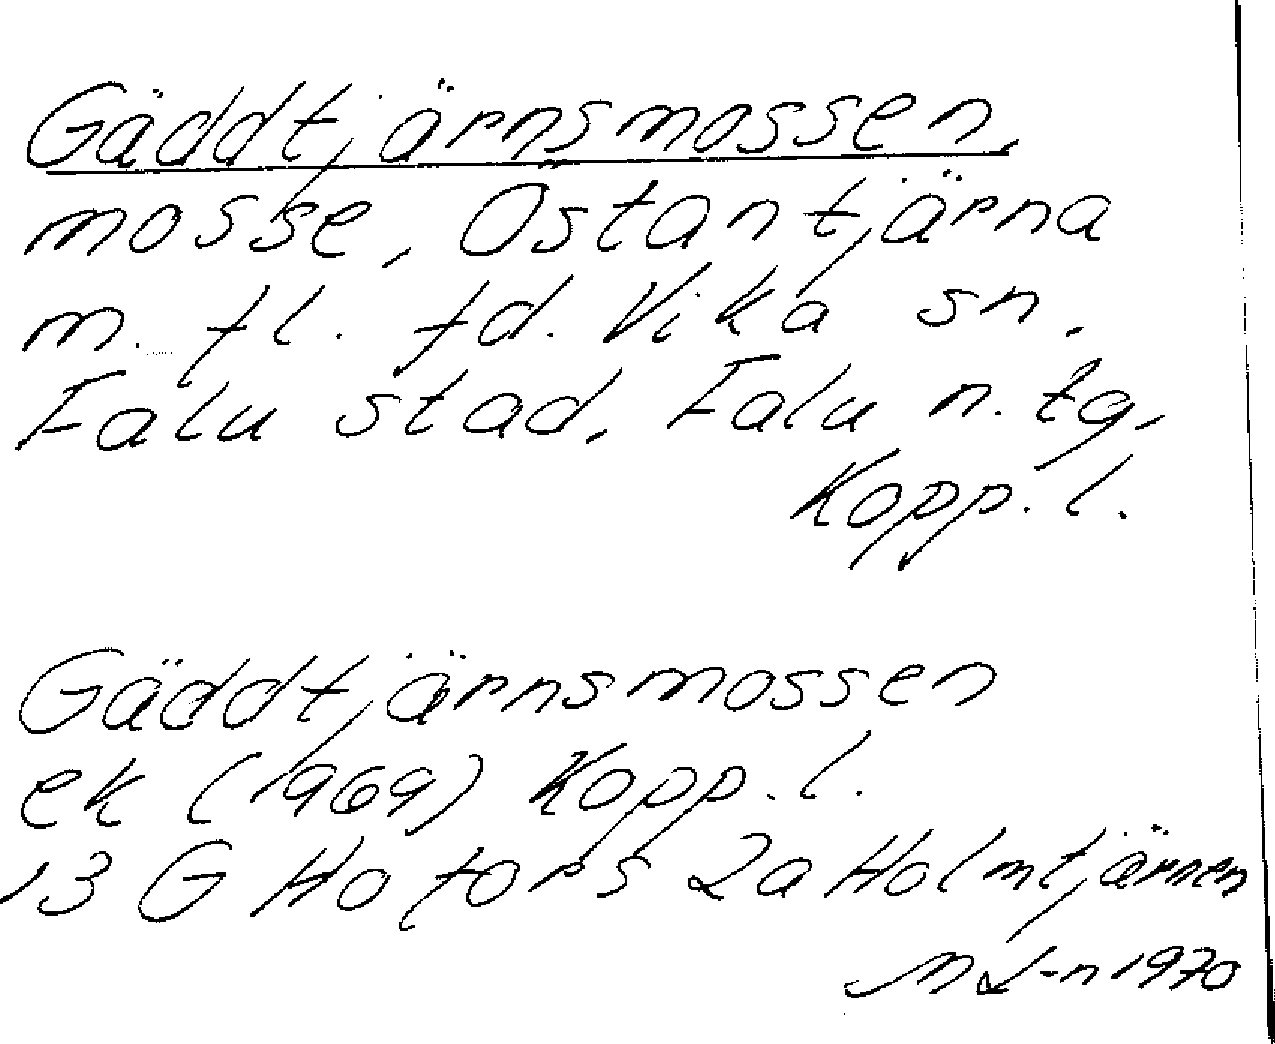 Gäddtjärnsmossen,
mosse, Östantjärna
m. fl. fd. Vika sn,
Falu stad, Falu n. tg,
Kopp. l.
Gäddtjärnsmossen
ek (1969) Kopp. l.
13 G Hofors 2a Holmtjärnen
M L-n 1970